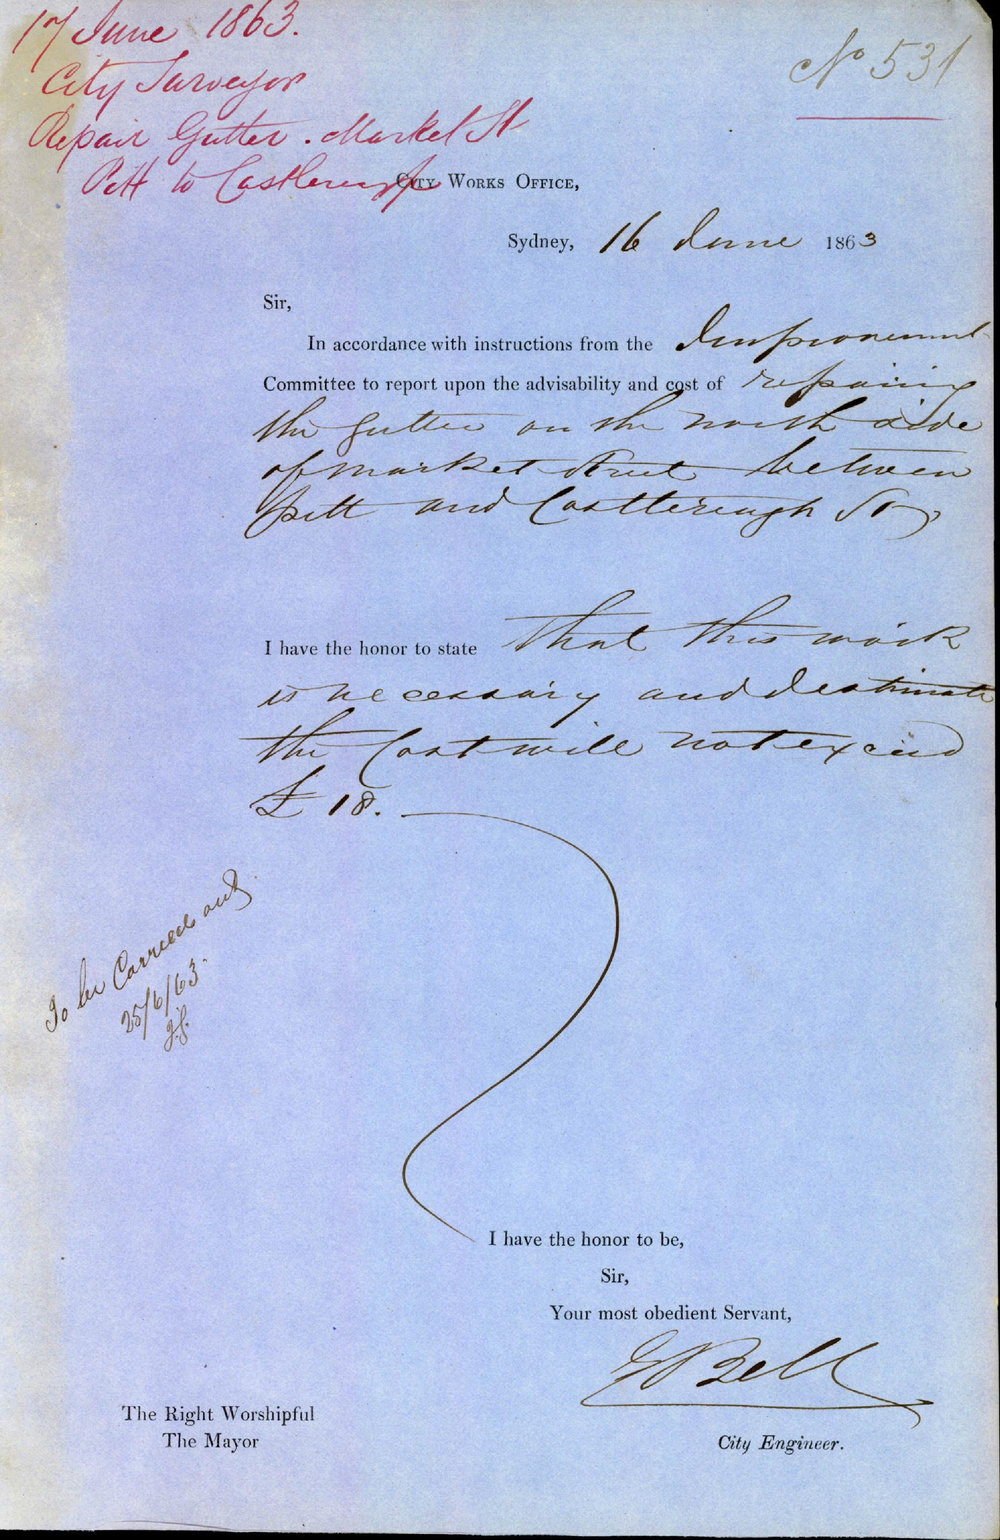 17 June 1863.
City Surveyor
Repair Gutter. Market St
Pitt to Castlereagh
No 531
City Works Office,
Sydney, 16 June 1863
Sir,
In accordance with instructions from the Improvement
Committee to report upon the advisability and cost of repairing
the gutter on the north side
of Market Street between
Pitt and Castlereagh St
I have the honor to state that this work
is necessary and I estimate
the Cost will not exceed
£18.
To be Carried out
25/6/63.
I have the honor to be,
Sir,
Your most obedient Servant,
E Bell
City Engineer.
The Right Worshipful
The Mayor